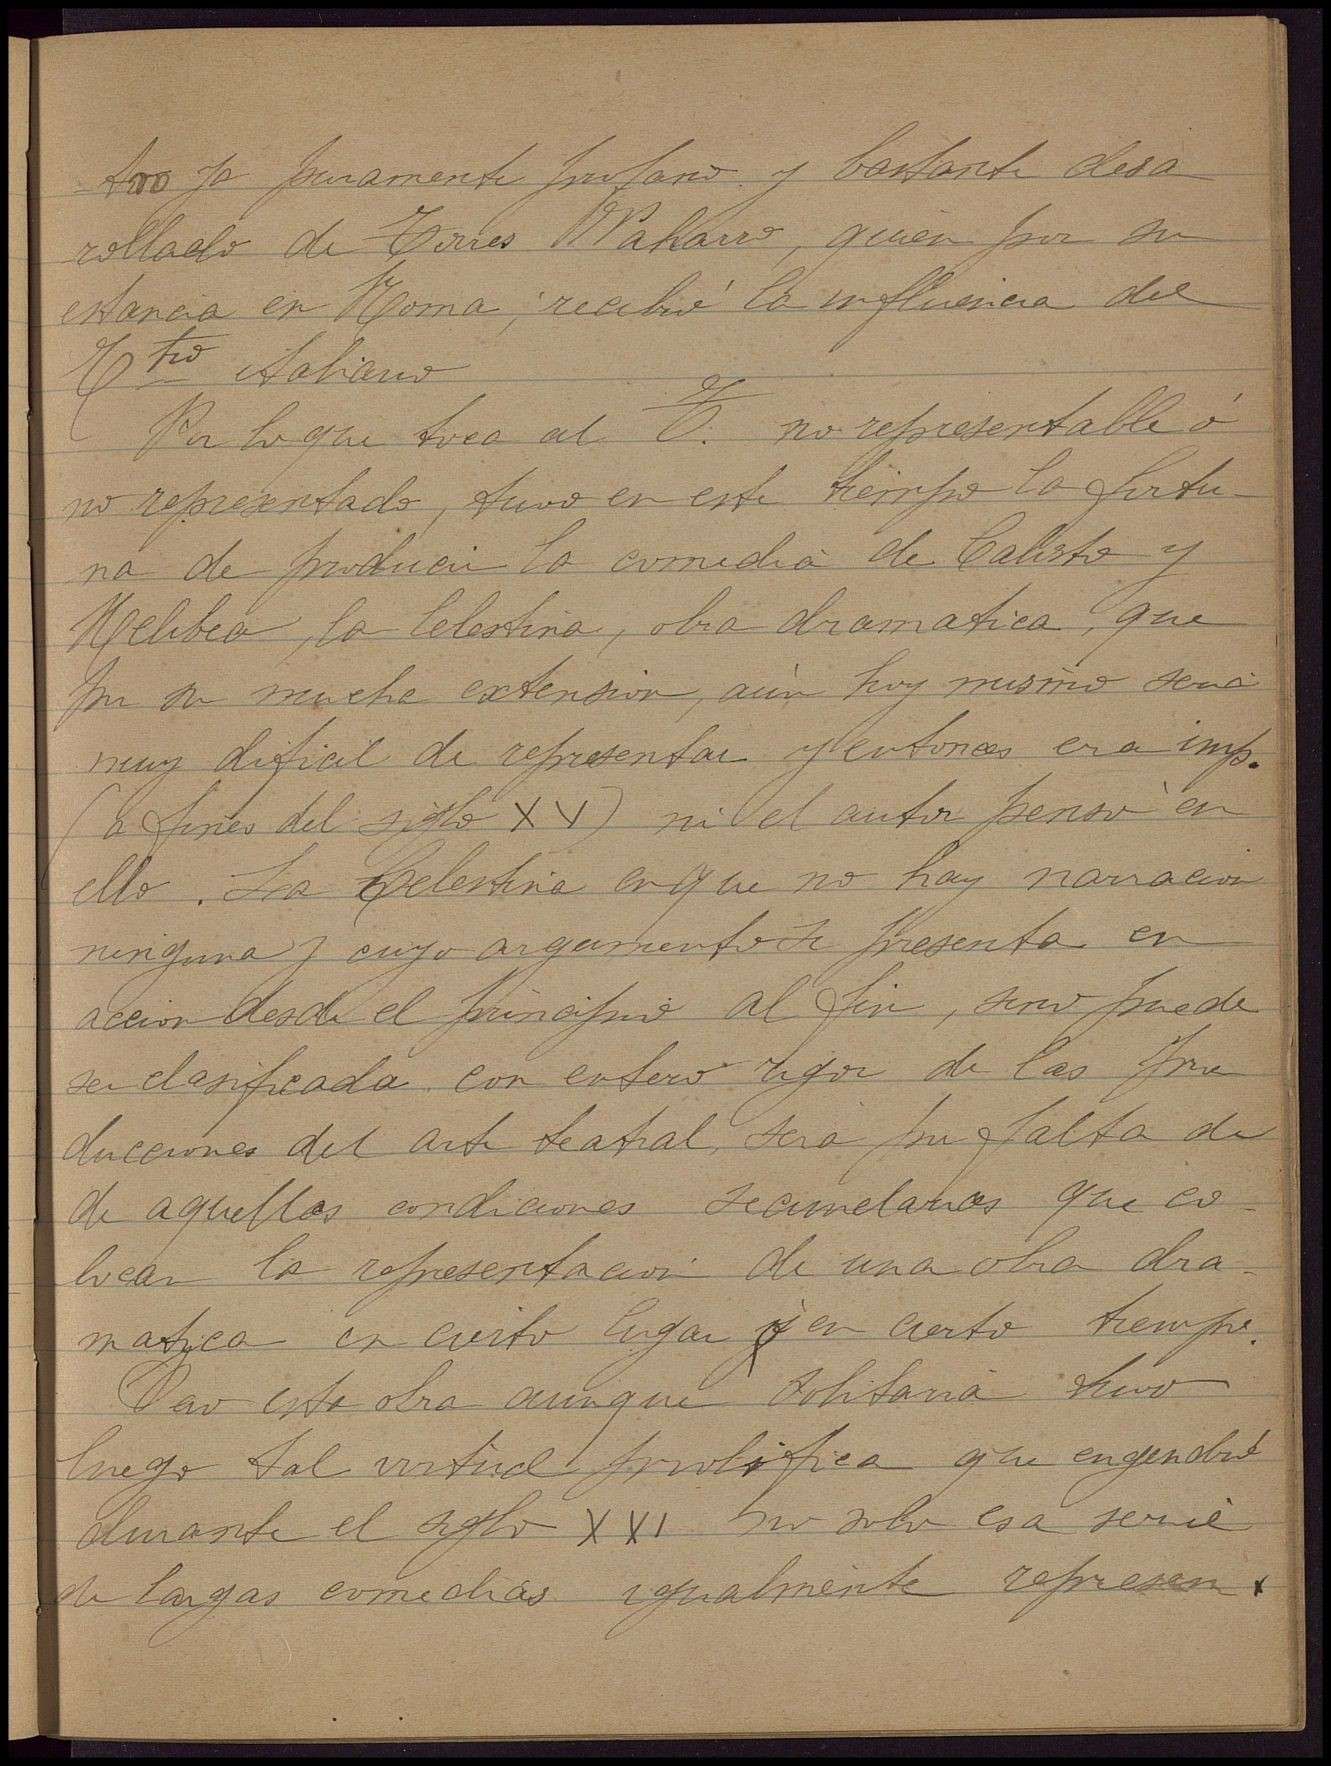 tro ya puramente profano y bastante desa
rollado de Torres Naharro, quien por su
estancia en Roma, recibió la influencia del
Ttro italiano
Por lo que toca al T. no representable ó
no representado, tuvo en este tiempo la fortu-
na de producir la comedia de Calisto y
Melibea, la Celestina, obra dramatica, que
por su mucha extension, aún hoy mismo seria
muy dificil de representar y entonces era imp.
(a fines del siglo XV) ni el autor pensó en
ello. La Celestina en que no hay narracion
ninguna y cuyo argumento se presenta en
accion desde el principio al fin, sino puede
ser clasificada con entero rigor de las pro
ducciones del arte teatral, será por falta de
de aquellas condiciones secundarias que co-
locan la representacion de una obra dra-
matica en cierto lugar y en cierto tiempo.
Pero esta obra aunque solitaria tuvo
luego tal virtud prolifica que engendró
durante el siglo XXI no solo esa serie
de largas comedias igualmente represen